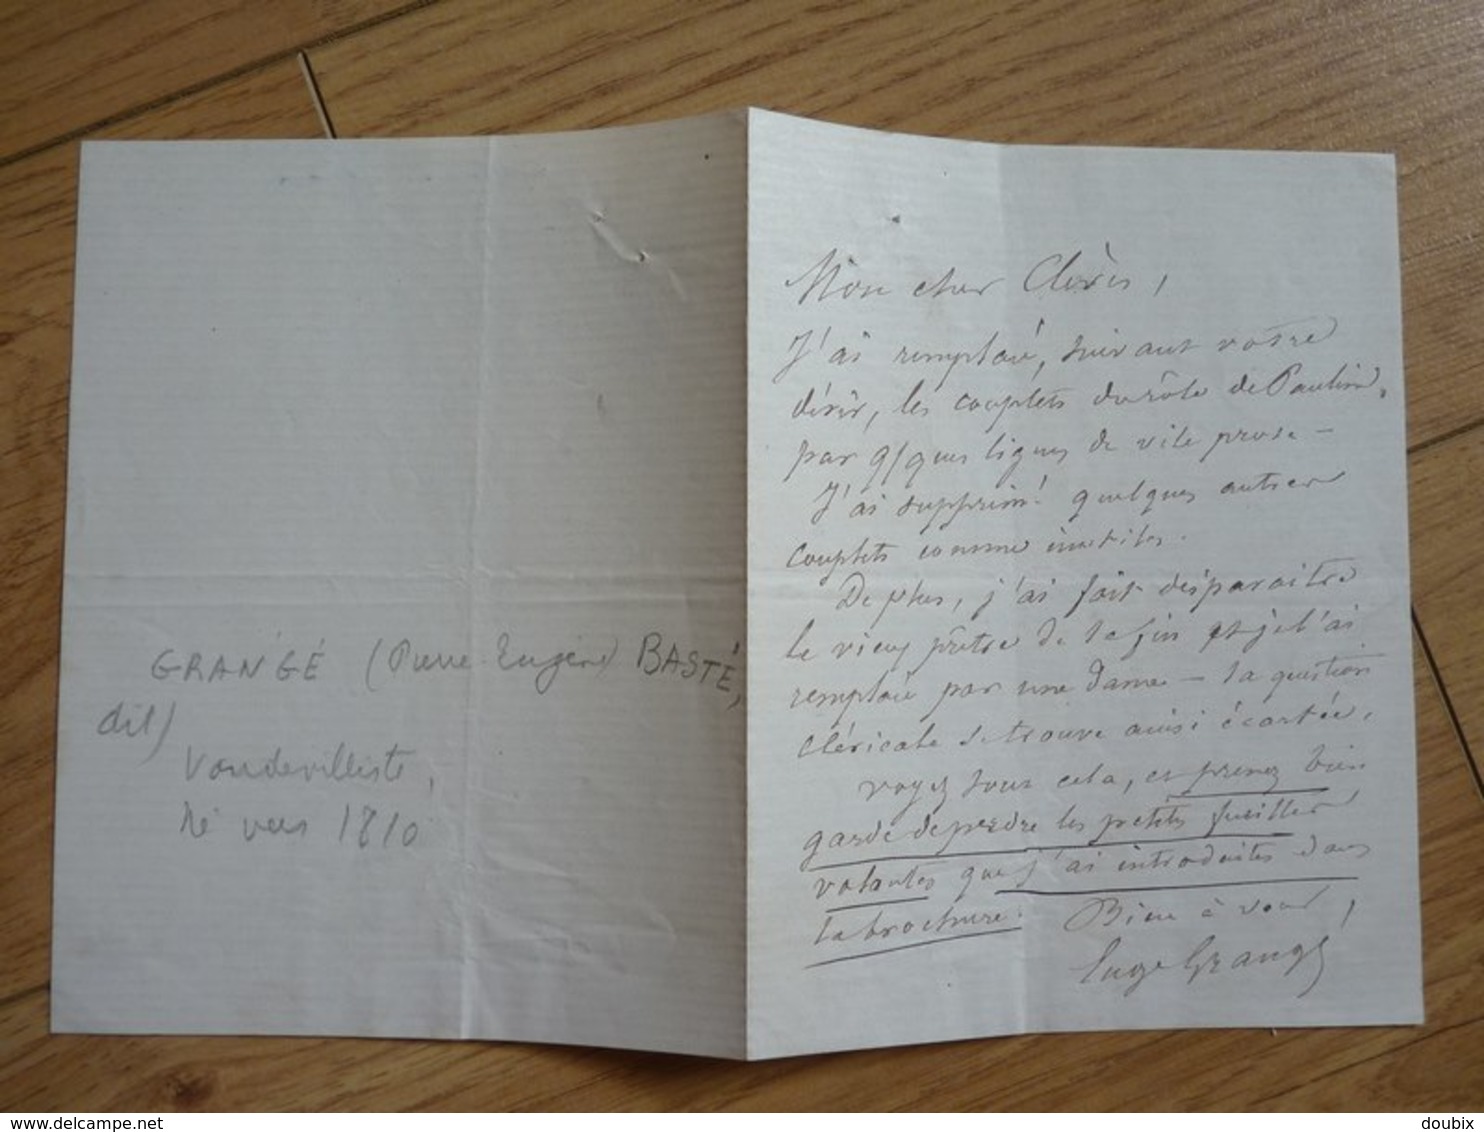 GRANGÉ (Pierre Eugène) BASTÉ,
dit)
Vaudevilliste,
né vers 1810
Mon cher Clèves,
J'ai remplacé, suivant votre
désir, les couplets du rôle de Paulin,
par q/ques lignes de vile prose –
J'ai supprimé quelques autres
couplets comme inutiles.
De plus, j'ai fait disparaitre
le vieux prêtre de la fin et je l'ai
remplacé par une dame – la question
cléricale se trouve ainsi écartée.
Voyez tout cela, et prenez bien
garde de perdre les petits feuilles
volantes que j'ai introduites dans
la brochure. Bien à vous,
Eug. Grangé
delcampe.net
doubix